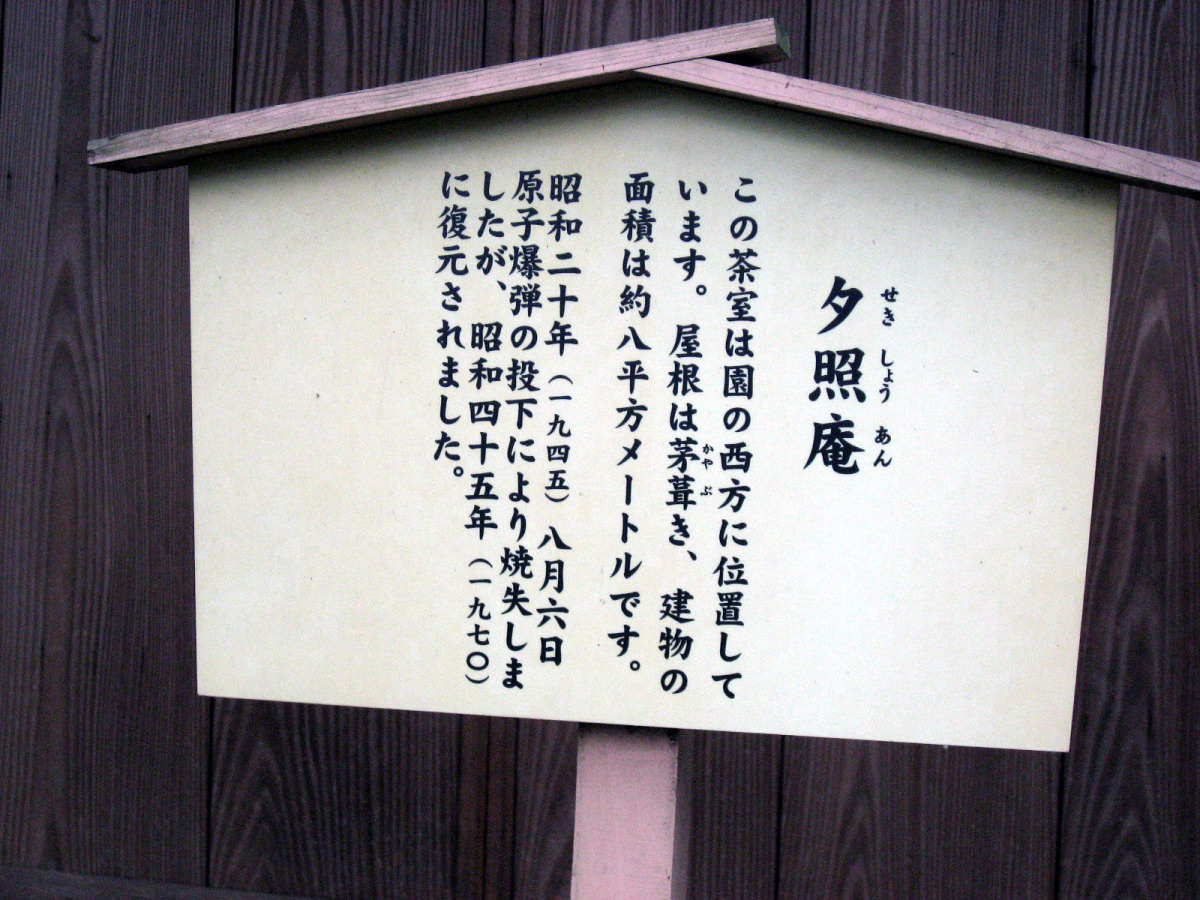 夕照庵
せき しょう あん
この茶室は園の西方に位置して
います。屋根は茅葺き、建物の
かやぶ
面積は約八平方メートルです。
昭和二十年（一九四五）八月六日
原子爆弾の投下により焼失しま
したが、昭和四十五年（一九七〇）
に復元されました。